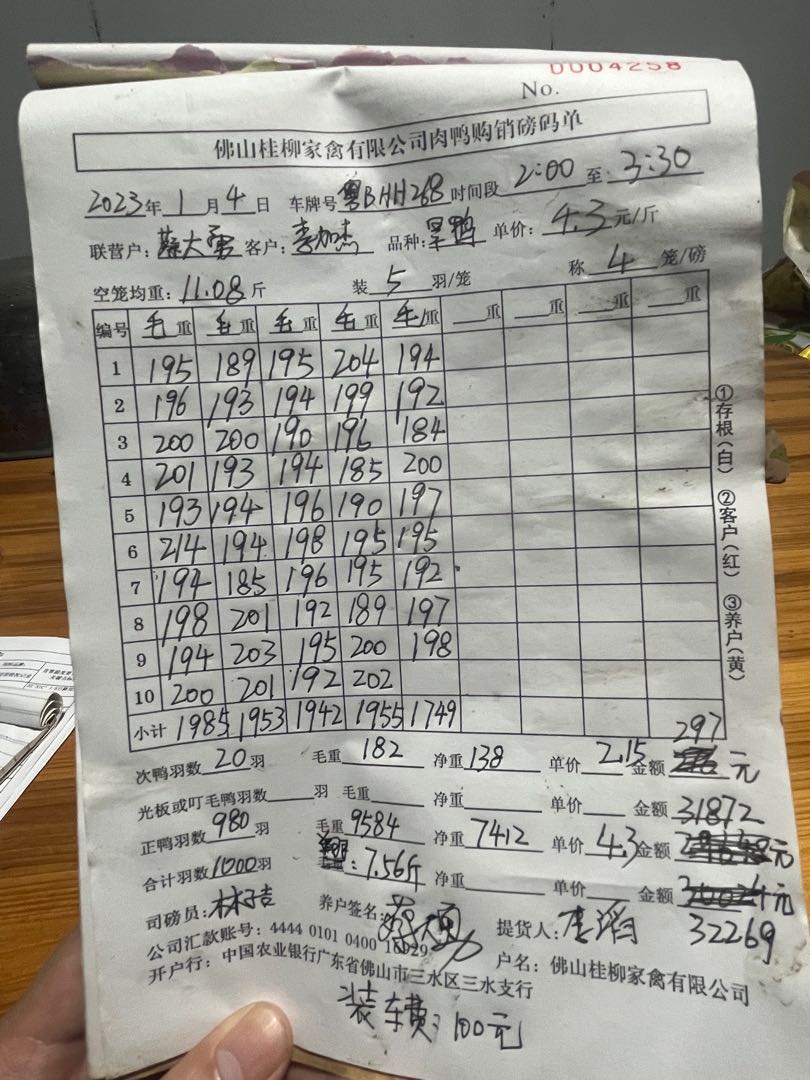 0004258
No.
佛山桂柳家禽有限公司肉鸭购销磅码单
2023年 1月 4日 车牌号 粤BHH268 时间段 2:00 至 3:30
联营户: 大勇 客户: 李加杰 品种: 旱鸭 单价: 4.3 元/斤
空笼均重: 11.08斤 装 5 羽/笼 称 4 笼/磅
编号 毛重 毛重 毛重 毛重 毛重 重 重 重 重
1 195 189 195 204 194
2 196 193 194 199 192
3 200 200 190 196 184
4 201 193 194 185 200
5 193 194 196 190 197
6 214 194 198 195 195
7 194 185 196 195 192
8 198 201 192 189 197
9 194 203 195 200 198
10 200 201 192 202
小计 1985 1953 1942 1955 1749
①存根(白) ②客户(红) ③养户(黄)
297
次鸭羽数 20 羽 毛重 182 净重 138 单价 2.15 金额 元
光板或叮毛鸭羽数 羽 毛重 净重 单价 金额 31872
正鸭羽数 980 羽 毛重 9584 净重 7412 单价 4.3 金额 元
合计羽数 1000 羽 : 7.56斤 净重 单价 金额 元
司磅员: 林子吉 养户签名: 提货人: 李滔 32269
公司汇款账号: 4444 0101 0400 户名: 佛山桂柳家禽有限公司
开户行: 中国农业银行广东省佛山市三水区三水支行
装车费: 100元